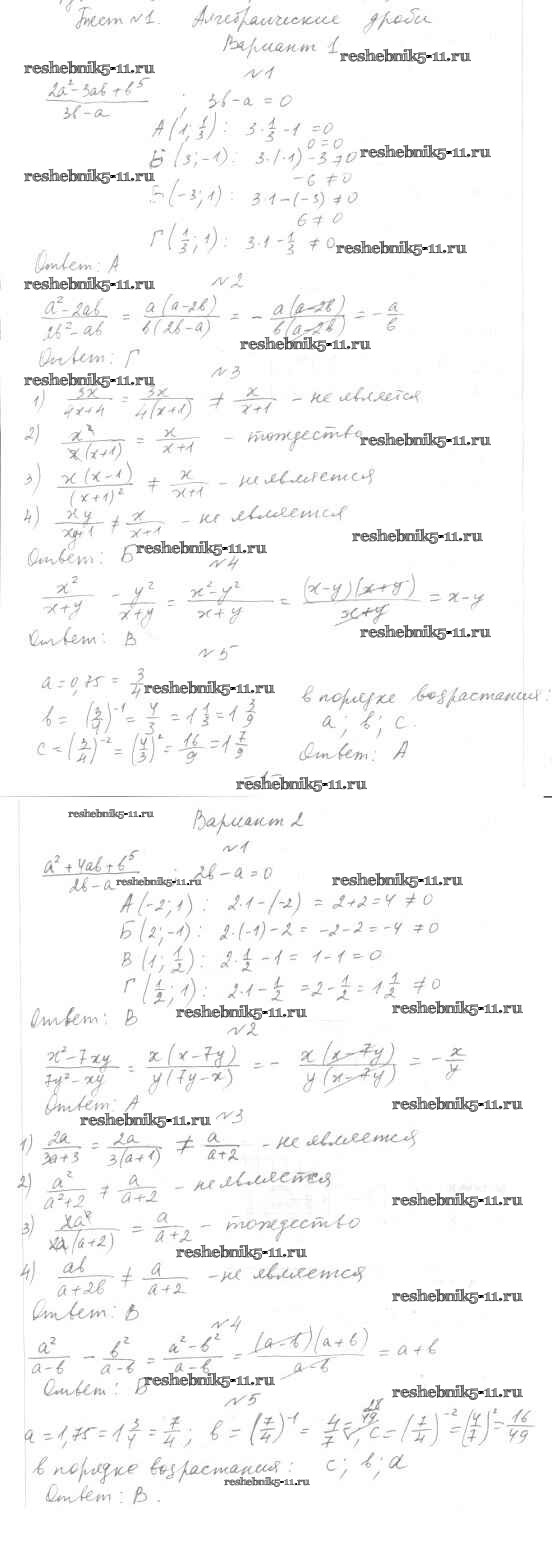 Тест №1. Алгебраические дроби
Вариант 1
reshebnik5-11.ru
reshebnik5-11.ru
№1
(2a²-3ab+b⁵)/(3b-a) ; 3b-a=0
А(1;1/3): 3·1/3-1=0
0=0
Б(3;-1): 3·(-1)-3≠0 reshebnik5-11.ru
reshebnik5-11.ru -6≠0
В(-3;1): 3·1-(-3)≠0
6≠0
Г(1/3;1): 3·1-1/3≠0 reshebnik5-11.ru
Ответ: А
reshebnik5-11.ru №2
(a²-2ab)/(2b²-ab) = a(a-2b)/b(2b-a) = - a(a-2b)/b(a-2b) = -a/b
reshebnik5-11.ru
Ответ: Г
reshebnik5-11.ru №3
1) 3x/(4x+4) = 3x/4(x+1) ≠ x/(x+1) - не является
2) x²/x(x+1) = x/(x+1) - тождество reshebnik5-11.ru
3) x(x-1)/(x+1)² ≠ x/(x+1) - не является
4) xy/(xy+1) ≠ x/(x+1) - не является
reshebnik5-11.ru
Ответ: Б reshebnik5-11.ru
№4
x²/(x+y) - y²/(x+y) = (x²-y²)/(x+y) = (x-y)(x+y)/(x+y) = x-y
Ответ: В reshebnik5-11.ru
№5
a=0,75=3/4 reshebnik5-11.ru
b=(3/4)⁻¹=4/3=1 1/3=1 3/9
c=(3/4)⁻²=(4/3)²=16/9=1 7/9
в порядке возрастания:
a; b; c.
Ответ: А
reshebnik5-11.ru
reshebnik5-11.ru Вариант 2
№1
(a²+4ab+b⁵)/(2b-a) ; 2b-a=0
reshebnik5-11.ru reshebnik5-11.ru
А(-2;1): 2·1-(-2)=2+2=4≠0
Б(2;-1): 2·(-1)-2=-2-2=-4≠0
В(1;1/2): 2·1/2-1=1-1=0
Г(1/2;1): 2·1-1/2=2-1/2=1 1/2≠0
Ответ: В reshebnik5-11.ru reshebnik5-11.ru
№2
(x²-7xy)/(7y²-xy) = x(x-7y)/y(7y-x) = - x(x-7y)/y(x-7y) = -x/y
Ответ: А reshebnik5-11.ru
reshebnik5-11.ru №3
1) 2a/(3a+3) = 2a/3(a+1) ≠ a/(a+2) - не является
2) a²/(a²+2) ≠ a/(a+2) - не является
reshebnik5-11.ru
3) 2a²/2a(a+2) = a/(a+2) - тождество
reshebnik5-11.ru
4) ab/(a+2b) ≠ a/(a+2) - не является
reshebnik5-11.ru
Ответ: В
№4
a²/(a-b) - b²/(a-b) = (a²-b²)/(a-b) = (a-b)(a+b)/(a-b) = a+b
Ответ: В reshebnik5-11.ru reshebnik5-11.ru
№5
a=1,75=1 3/4=7/4; b=(7/4)⁻¹=4/7=28/49; c=(7/4)⁻²=(4/7)²=16/49
в порядке возрастания: c; b; a
reshebnik5-11.ru
Ответ: В.